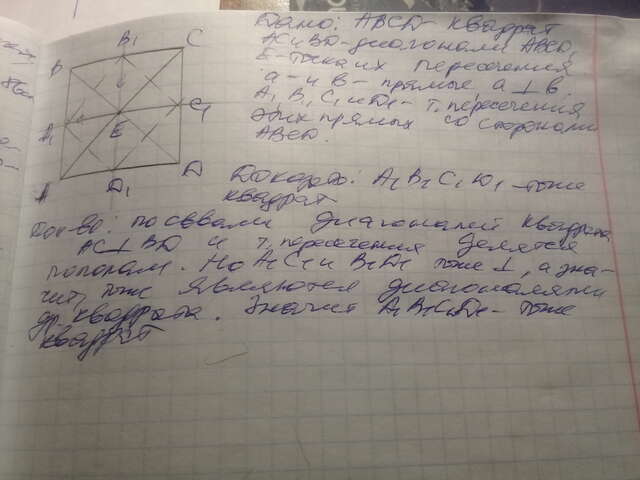 Дано: ABCD - квадрат
AC и BD - диагонали ABCD
E - точка их пересечения
a - и b - прямые a ⊥ b
A₁ B₁ C₁ и D₁ - т. пересечения
этих прямых со сторонами
ABCD.
B B₁ C
A₁ E C₁
A D₁ D
Доказать: A₁B₁C₁D₁ - тоже
квадрат
Док-во: по св-вам диагоналей квадрата
AC ⊥ BD и т. пересечения делятся
пополам. Но A₁C₁ и B₁D₁ тоже ⊥, а зна-
чит тоже являются диагоналями
квадрата. Значит A₁B₁C₁D₁ - тоже
квадрат